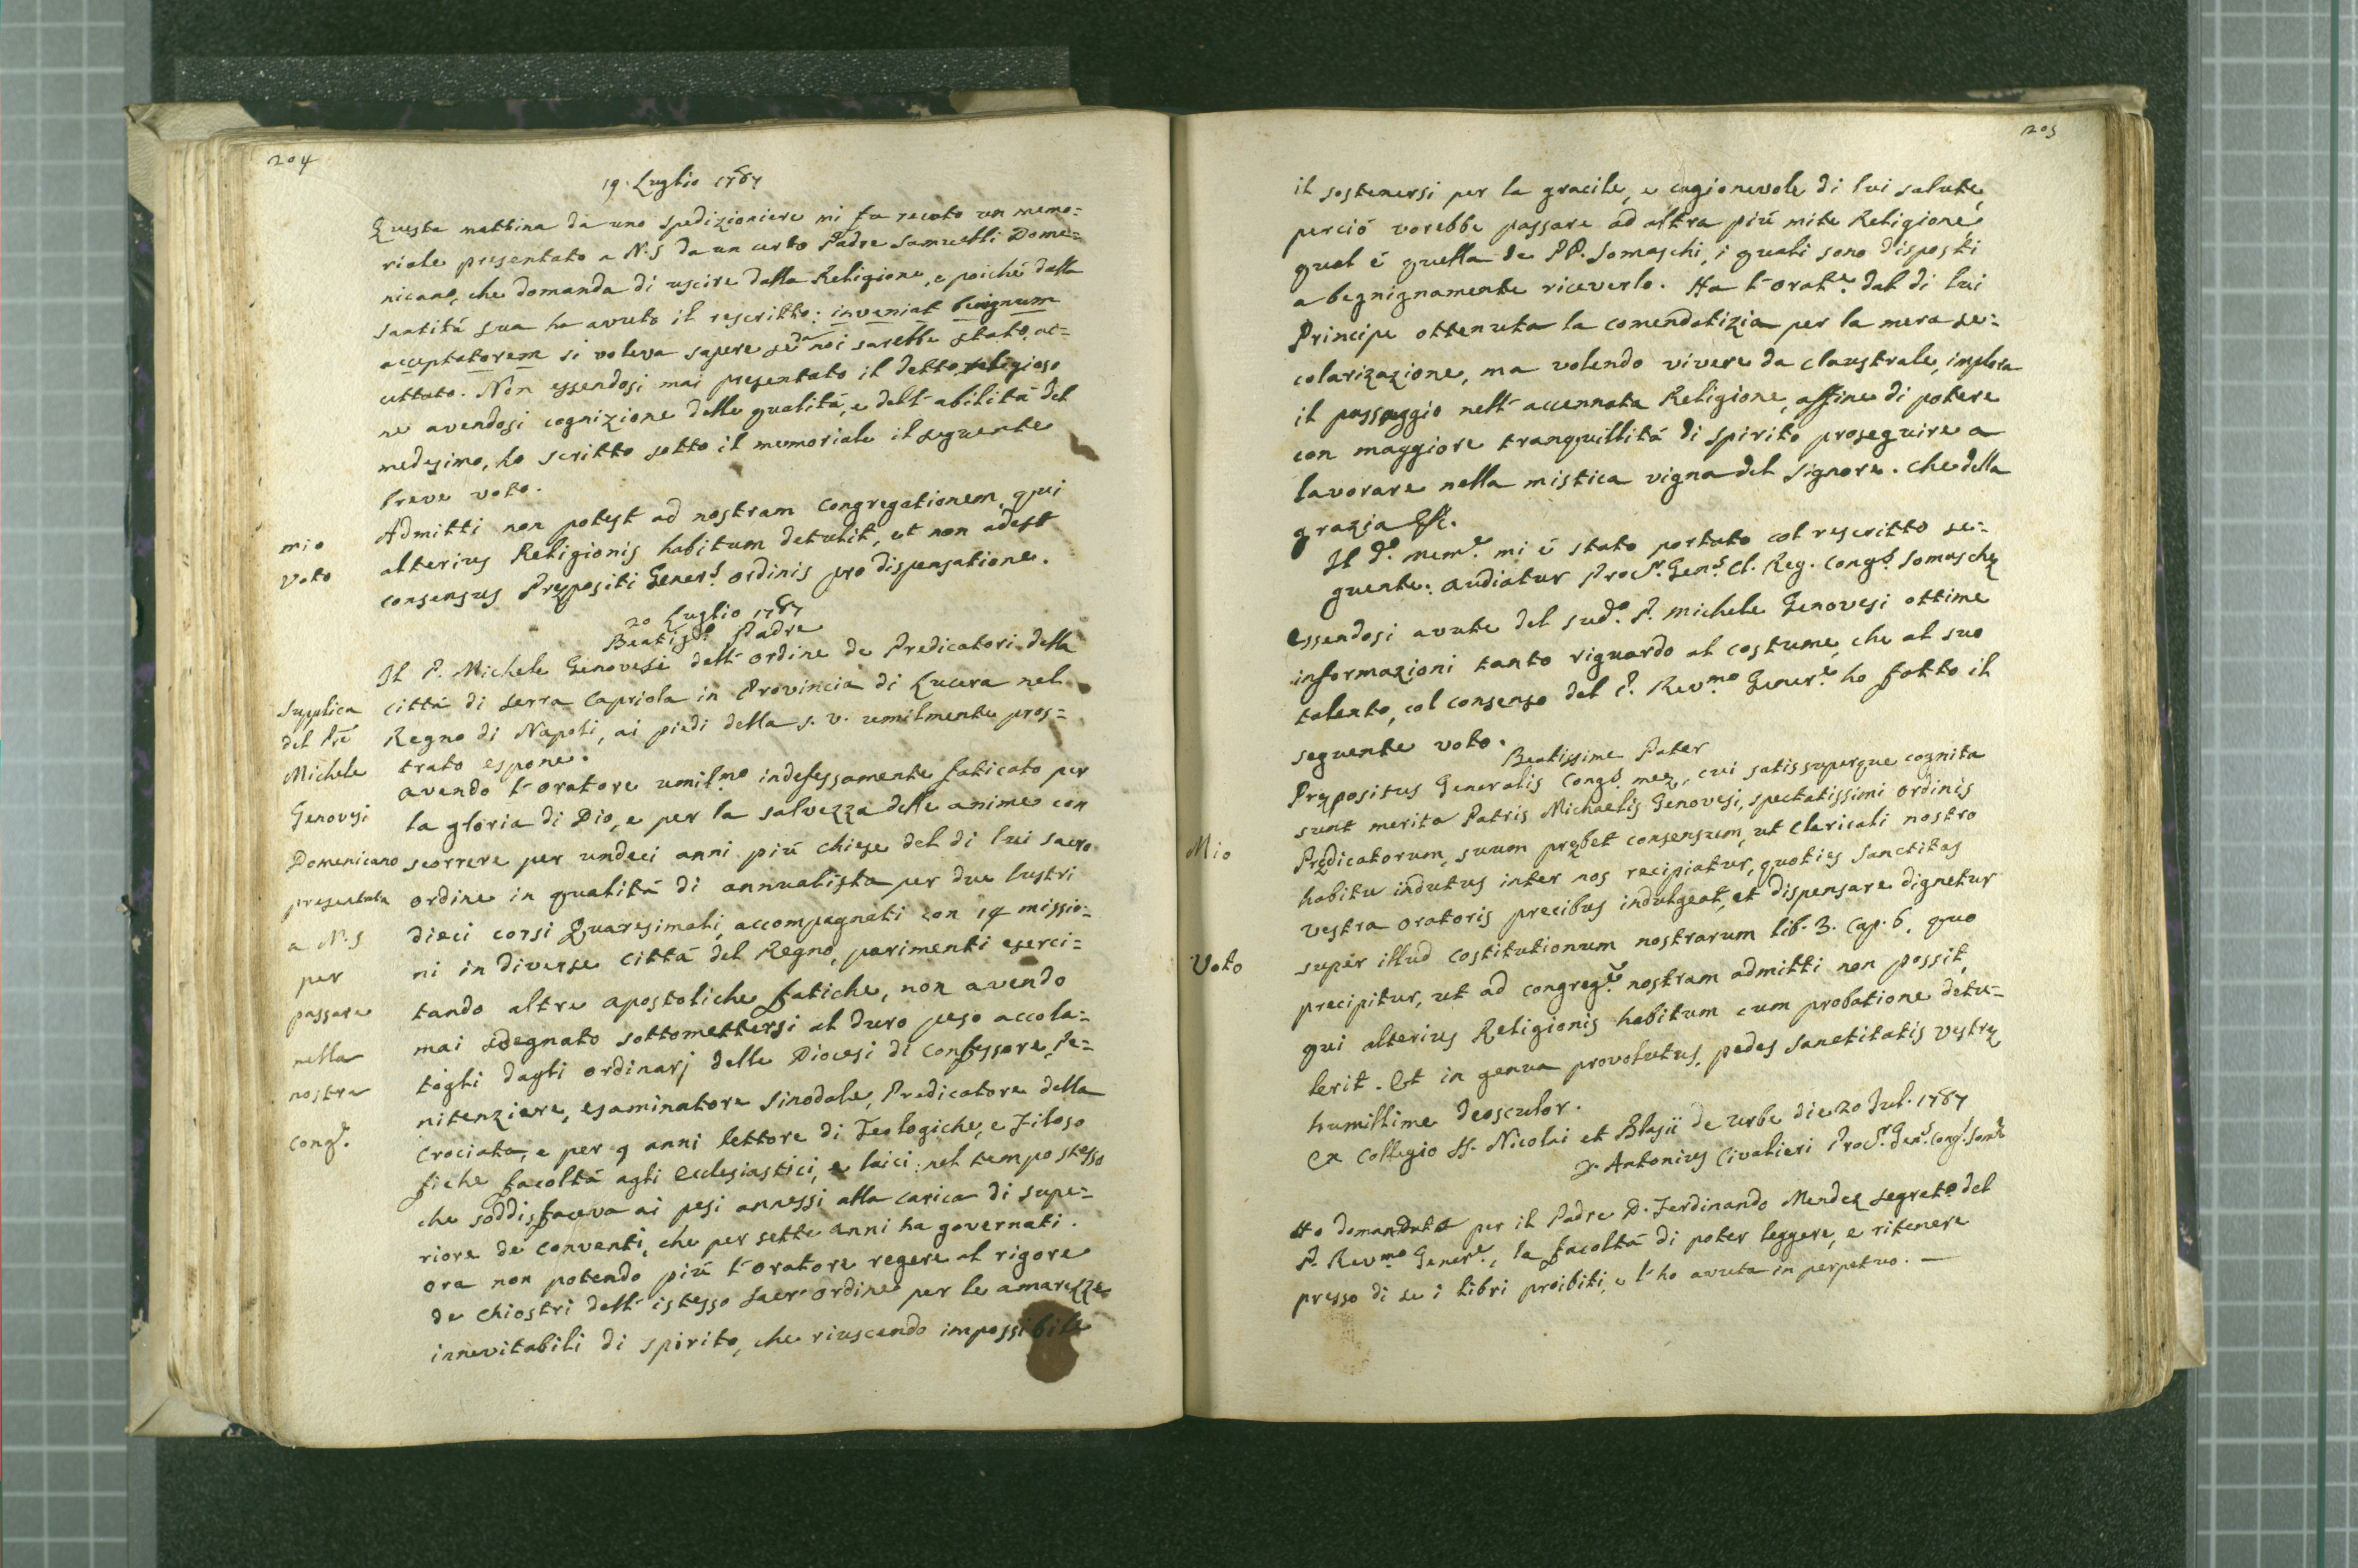 204
19. Luglio 1787
Questa mattina da uno spedizioniere mi fu recato un memo=
riale presentato a N.S da un certo Padre Samuelli Dome=
nicano, che domanda di uscire dalla Religione, e poiché dalla
Santitá sua ha avuto il rescritto: inveniat benignum
acceptatorem si voleva sapere se da noi sarebbe stato ac=
cettato. Non essendosi mai presentato il detto religioso
ne avendosi cognizione delle qualitá, e dell'abilitá del
medesimo, ho scritto sotto il memoriale il seguente
breve voto.
mio
Voto
Admitti non potest ad nostram Congregationem, qui
alterius Religionis habitum detulit, et non adest
consensus Prepositi Gener.s ordinis pro dispensatione.
20 Luglio 1787
Beatis.o Padre
Supplica
del Pre
Michele
Genovesi
Domenicano
presentata
a N.S
per
passare
nella
nostra
Cong.e
Il P. Michele Genovesi dell'ordine de Predicatori della
cittá di Serra Capriola in Provincia di Lucera nel
Regno di Napoli, ai piedi della S. V. umilmente pros=
trato espone.
avendo l'oratore umil.mo indefessamente faticato per
la gloria di Dio, e per la salvezza delle anime con
scorrere per undeci anni piú chiese del di lui sacro
ordine in qualitá di annualista per due lustri
dieci corsi Quaresimali, accompagnati con 14 missio=
ni in diverse Cittá del Regno, parimenti eserci=
tando altre apostoliche fatiche, non avendo
mai sdegnato sottomettersi al duro peso accola=
togli dagli ordinarj delle Diocesi di Confessore, Pe=
nitenziere, esaminatore Sinodale, Predicatore della
Crociata, e per 9 anni lettore di Teologiche, e Filoso
fiche facoltá agli Ecclesiastici, e laici: nel tempo stesso
che soddisfaceva ai pesi annessi alla carica di supe=
riore de Conventi, che per sette anni ha governati.
ora non potendo piú l'oratore regere al rigore
de Chiostri dell'istesso Sacr'ordine per le amarezze
innevitabili di spirito, che riuscendo impossibile
205
il sostenersi per la gracile, e cagionevole di lui salute,
perció vorebbe passare ad altra piú mite Religione,
qual é quella de PP. Somaschi, i quali sono disposti
a begnignamente riceverlo. Ha l'orat.e dal di lui
Principe ottenuta la comendatizia per la mera se=
colarizazione, ma volendo vivere da claustrale, implora
il passaggio nell'accennata Religione, affine di potere
con maggiore tranquillitá di spirito proseguire a
lavorare nella mistica vigna del Signore. Che della
grazia &c.
Il d.o mem.e mi é stato portato col rescritto se=
guente: Audiatur Proc.r Gen.s Cl. Reg. Cong.s Somasche
Essendosi avute del sud.o P. Michele Genovesi ottime
informazioni tanto riguardo al costume, che al suo
talento, col consenso del P. Rev.mo Gener.e ho fatto il
seguente voto.
Beatissime Pater
Mio
Voto
Prepositus Generalis Cong.s mee, cui satis superque cognita
sunt merita Patris Michaelis Genovesi, spectatissimi ordinis
Predicatorum, suum prebet consensum, ut Clericali nostro
habitu indutus inter nos recipiatur, quoties Sanctitas
vestra oratoris precibus indulgeat, et dispensare dignetur
super illud Costitutionum nostrarum lib. 3. Cap. 6. quo
precipitur, ut ad congreg.e nostram admitti non possit,
qui alterius Religionis habitum cum probatione detu=
lerit. Et in genua provolutus, pedes Sanctitatis vestre
humillime deosculor.
Ex Collegio SS. Nicolai et Blasii de urbe die 20 Jul. 1787
D. Antonius Civalieri Proc.r Gen.s Cong.s Som.e
Ho domandato per il Padre D. Ferdinando Mendez Segret.o del
P. Rev.mo Gener.e, la facoltá di poter leggere, e ritenere
presso di se i libri proibiti, e l'ho avuta in perpetuo. —